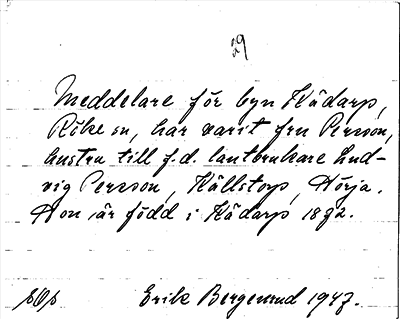 Meddelare för byn Kådarp,
Röke sn, har varit fru Persson,
hustru till f.d. lantbrukare Lud-
vig Persson, Källstorp, Hörja.
Hon är född i Kådarp 1872.
Erik Bergerund 1947.